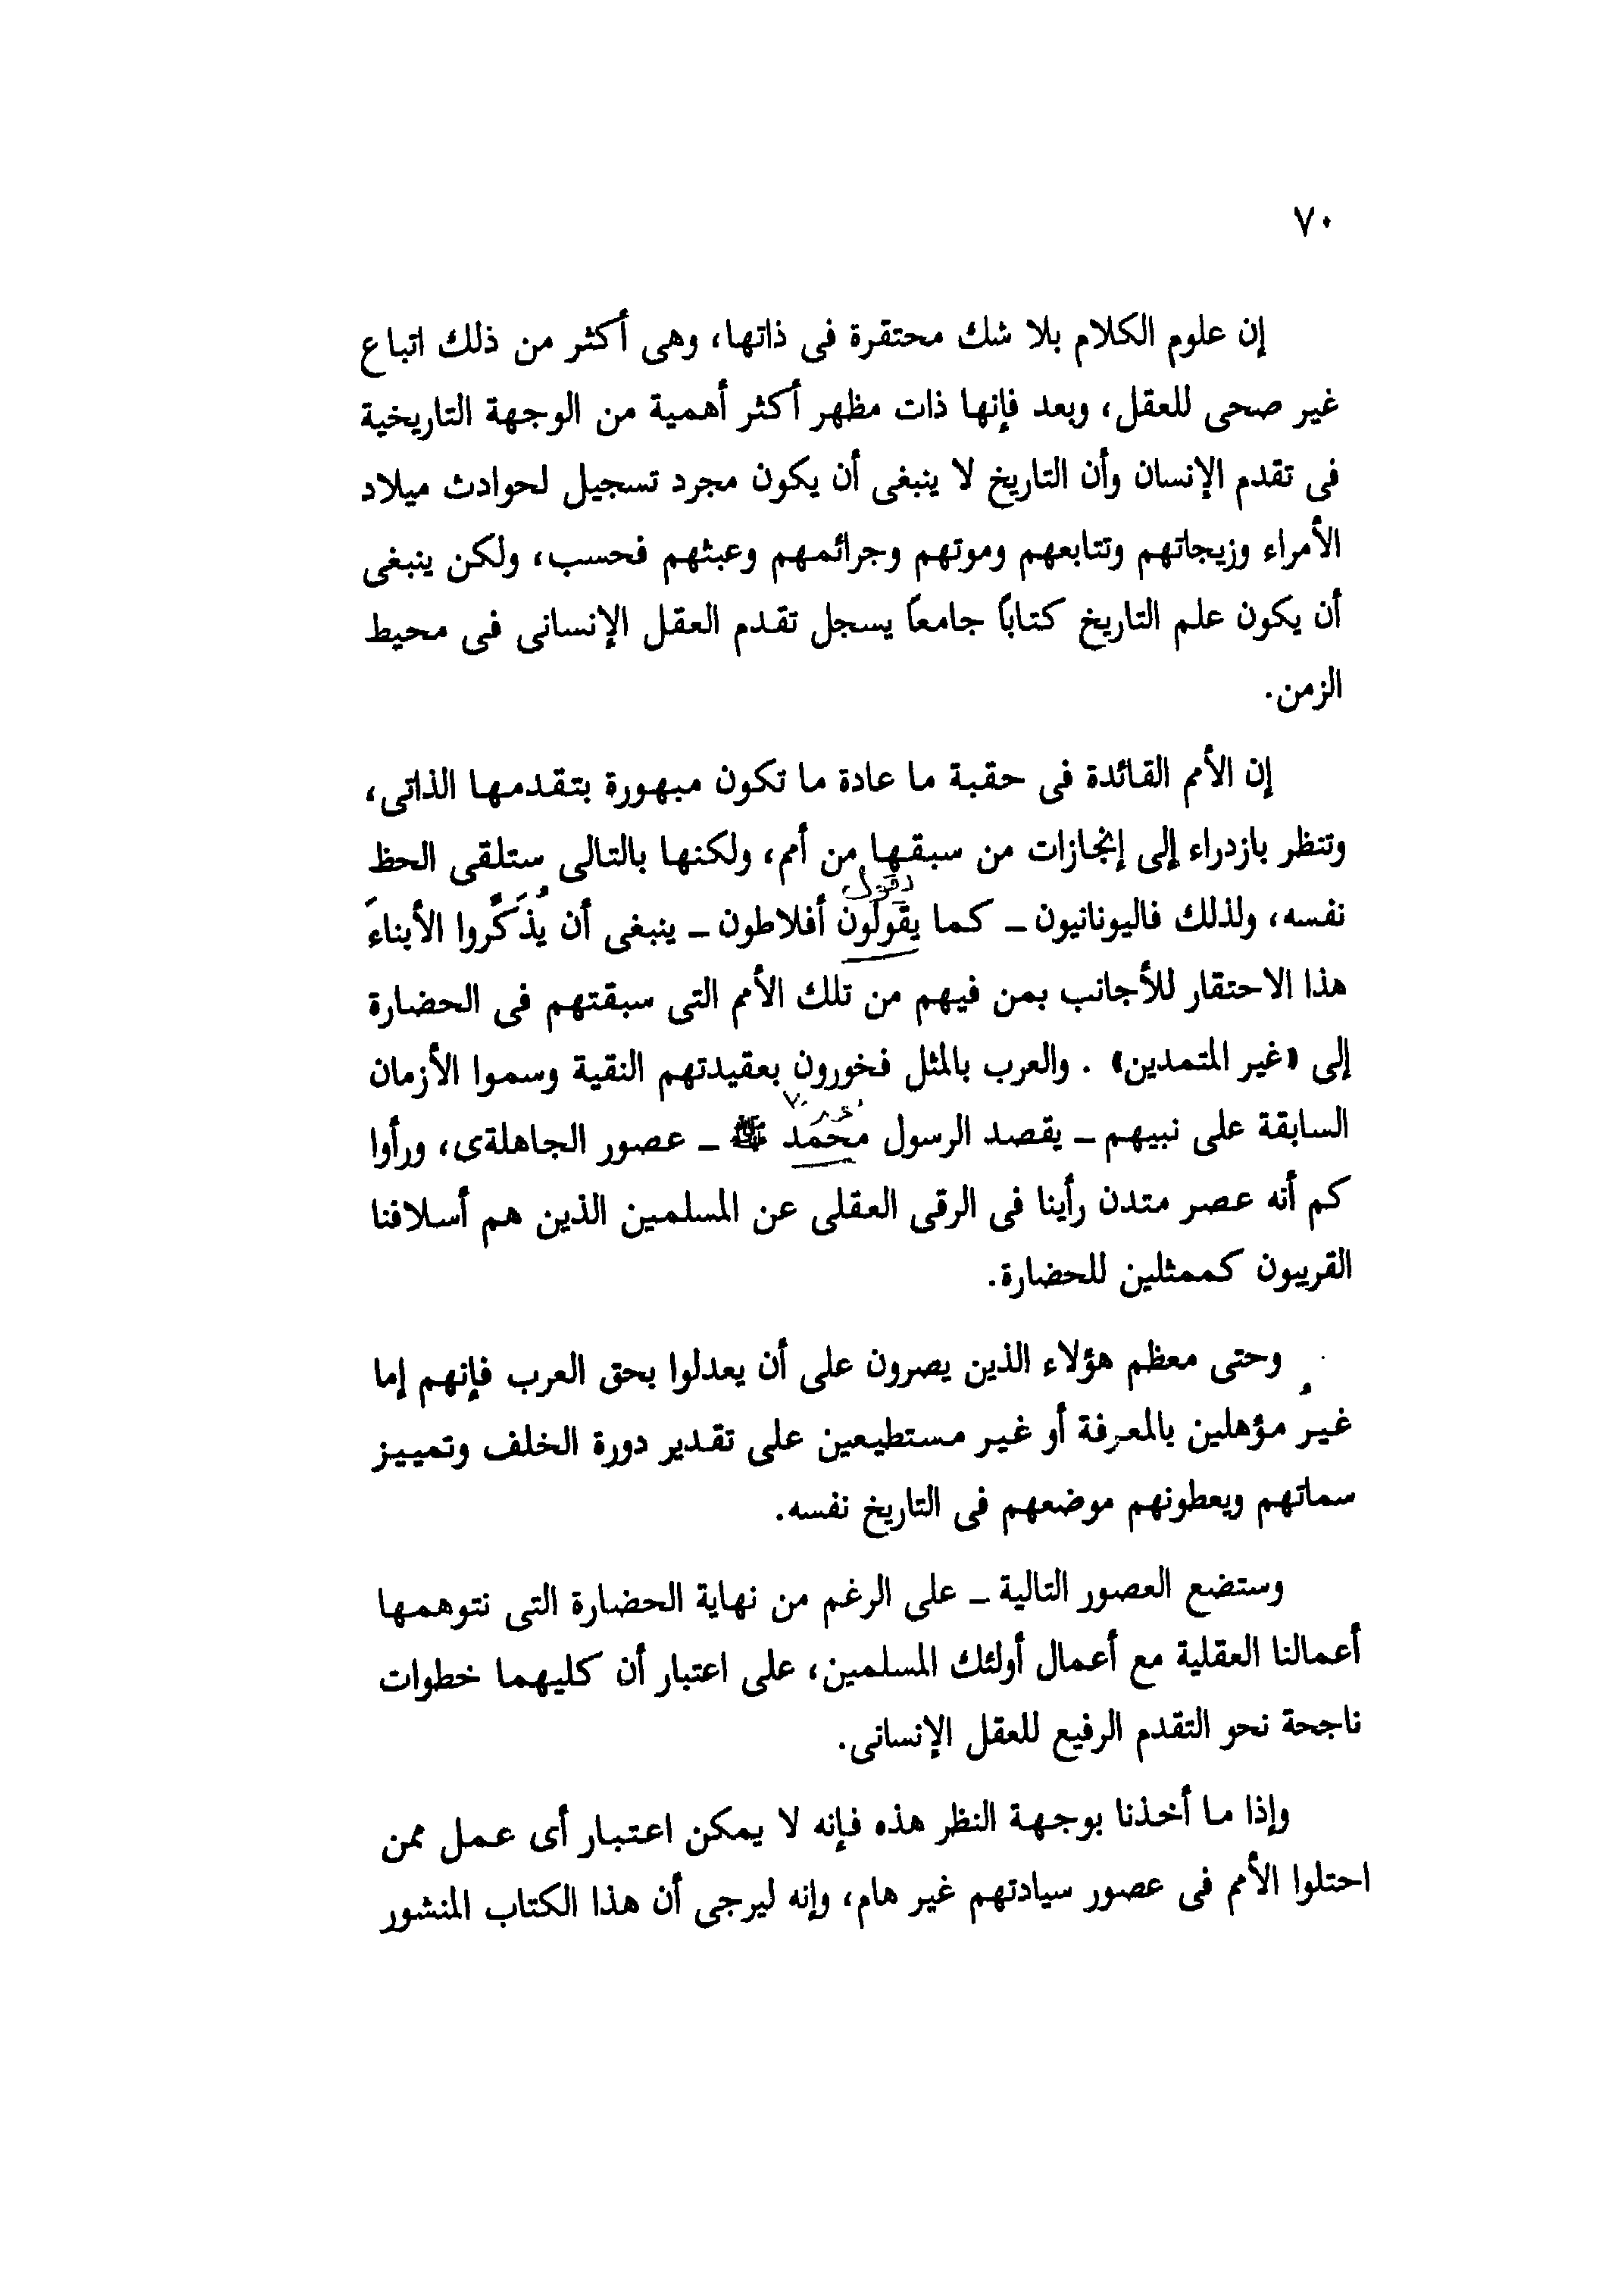 ٧٠
إن علوم الكلام بلا شك محتقرة فى ذاتها، وهى أكثر من ذلك اتباع
غير صحى للعقل، وبعد فإنها ذات مظهر أكثر أهمية من الوجهة التاريخية
فى تقدم الإنسان وأن التاريخ لا ينبغى أن يكون مجرد تسجيل لحوادث ميلاد
الأمراء وزيجاتهم وتتابعهم وموتهم وجرائمهم وعبثهم فحسب، ولكن ينبغى
أن يكون علم التاريخ كتاباً جامعاً يسجل تقدم العقل الإنسانى فى محيط
الزمن.
إن الأمم القائدة فى حقبة ما عادة ما تكون مبهورة بتقدمها الذاتى،
وتنظر بازدراء إلى إنجازات من سبقها من أمم، ولكنها بالتالى ستلقى الحظ
نفسه، ولذلك فاليونانيون ـ كما يقولون أفلاطون ـ ينبغى أن يُذَكَّروا الأبناءَ
هذا الاحتقار للأجانب بمن فيهم من تلك الأمم التى سبقتهم فى الحضارة
إلى «غير المتمدين» . والعرب بالمثل فخورون بعقيدتهم النقية وسموا الأزمان
السابقة على نبيهم ـ يقصد الرسول محمد ﷺ ـ عصور الجاهلةى، ورأوا
كم أنه عصر متدن رأينا فى الرقى العقلى عن المسلمين الذين هم أسلافنا
القريبون كممثلين للحضارة.
وحتى معظم هؤلاء الذين يصرون على أن يعدلوا بحق العرب فإنهم إما
غير مؤهلين بالمعرفة أو غير مستطيعين على تقدير دورة الخلف وتمييز
سماتهم ويعطونهم موضعهم فى التاريخ نفسه.
وستضع العصور التالية ـ على الرغم من نهاية الحضارة التى نتوهمها
أعمالنا العقلية مع أعمال أولئك المسلمين، على اعتبار أن كليهما خطوات
ناجحة نحو التقدم الرفيع للعقل الإنسانى.
وإذا ما أخذنا بوجهة النظر هذه فإنه لا يمكن اعتبار أى عمل ممن
احتلوا الأمم فى عصور سيادتهم غير هام، وإنه ليرجى أن هذا الكتاب المنشور